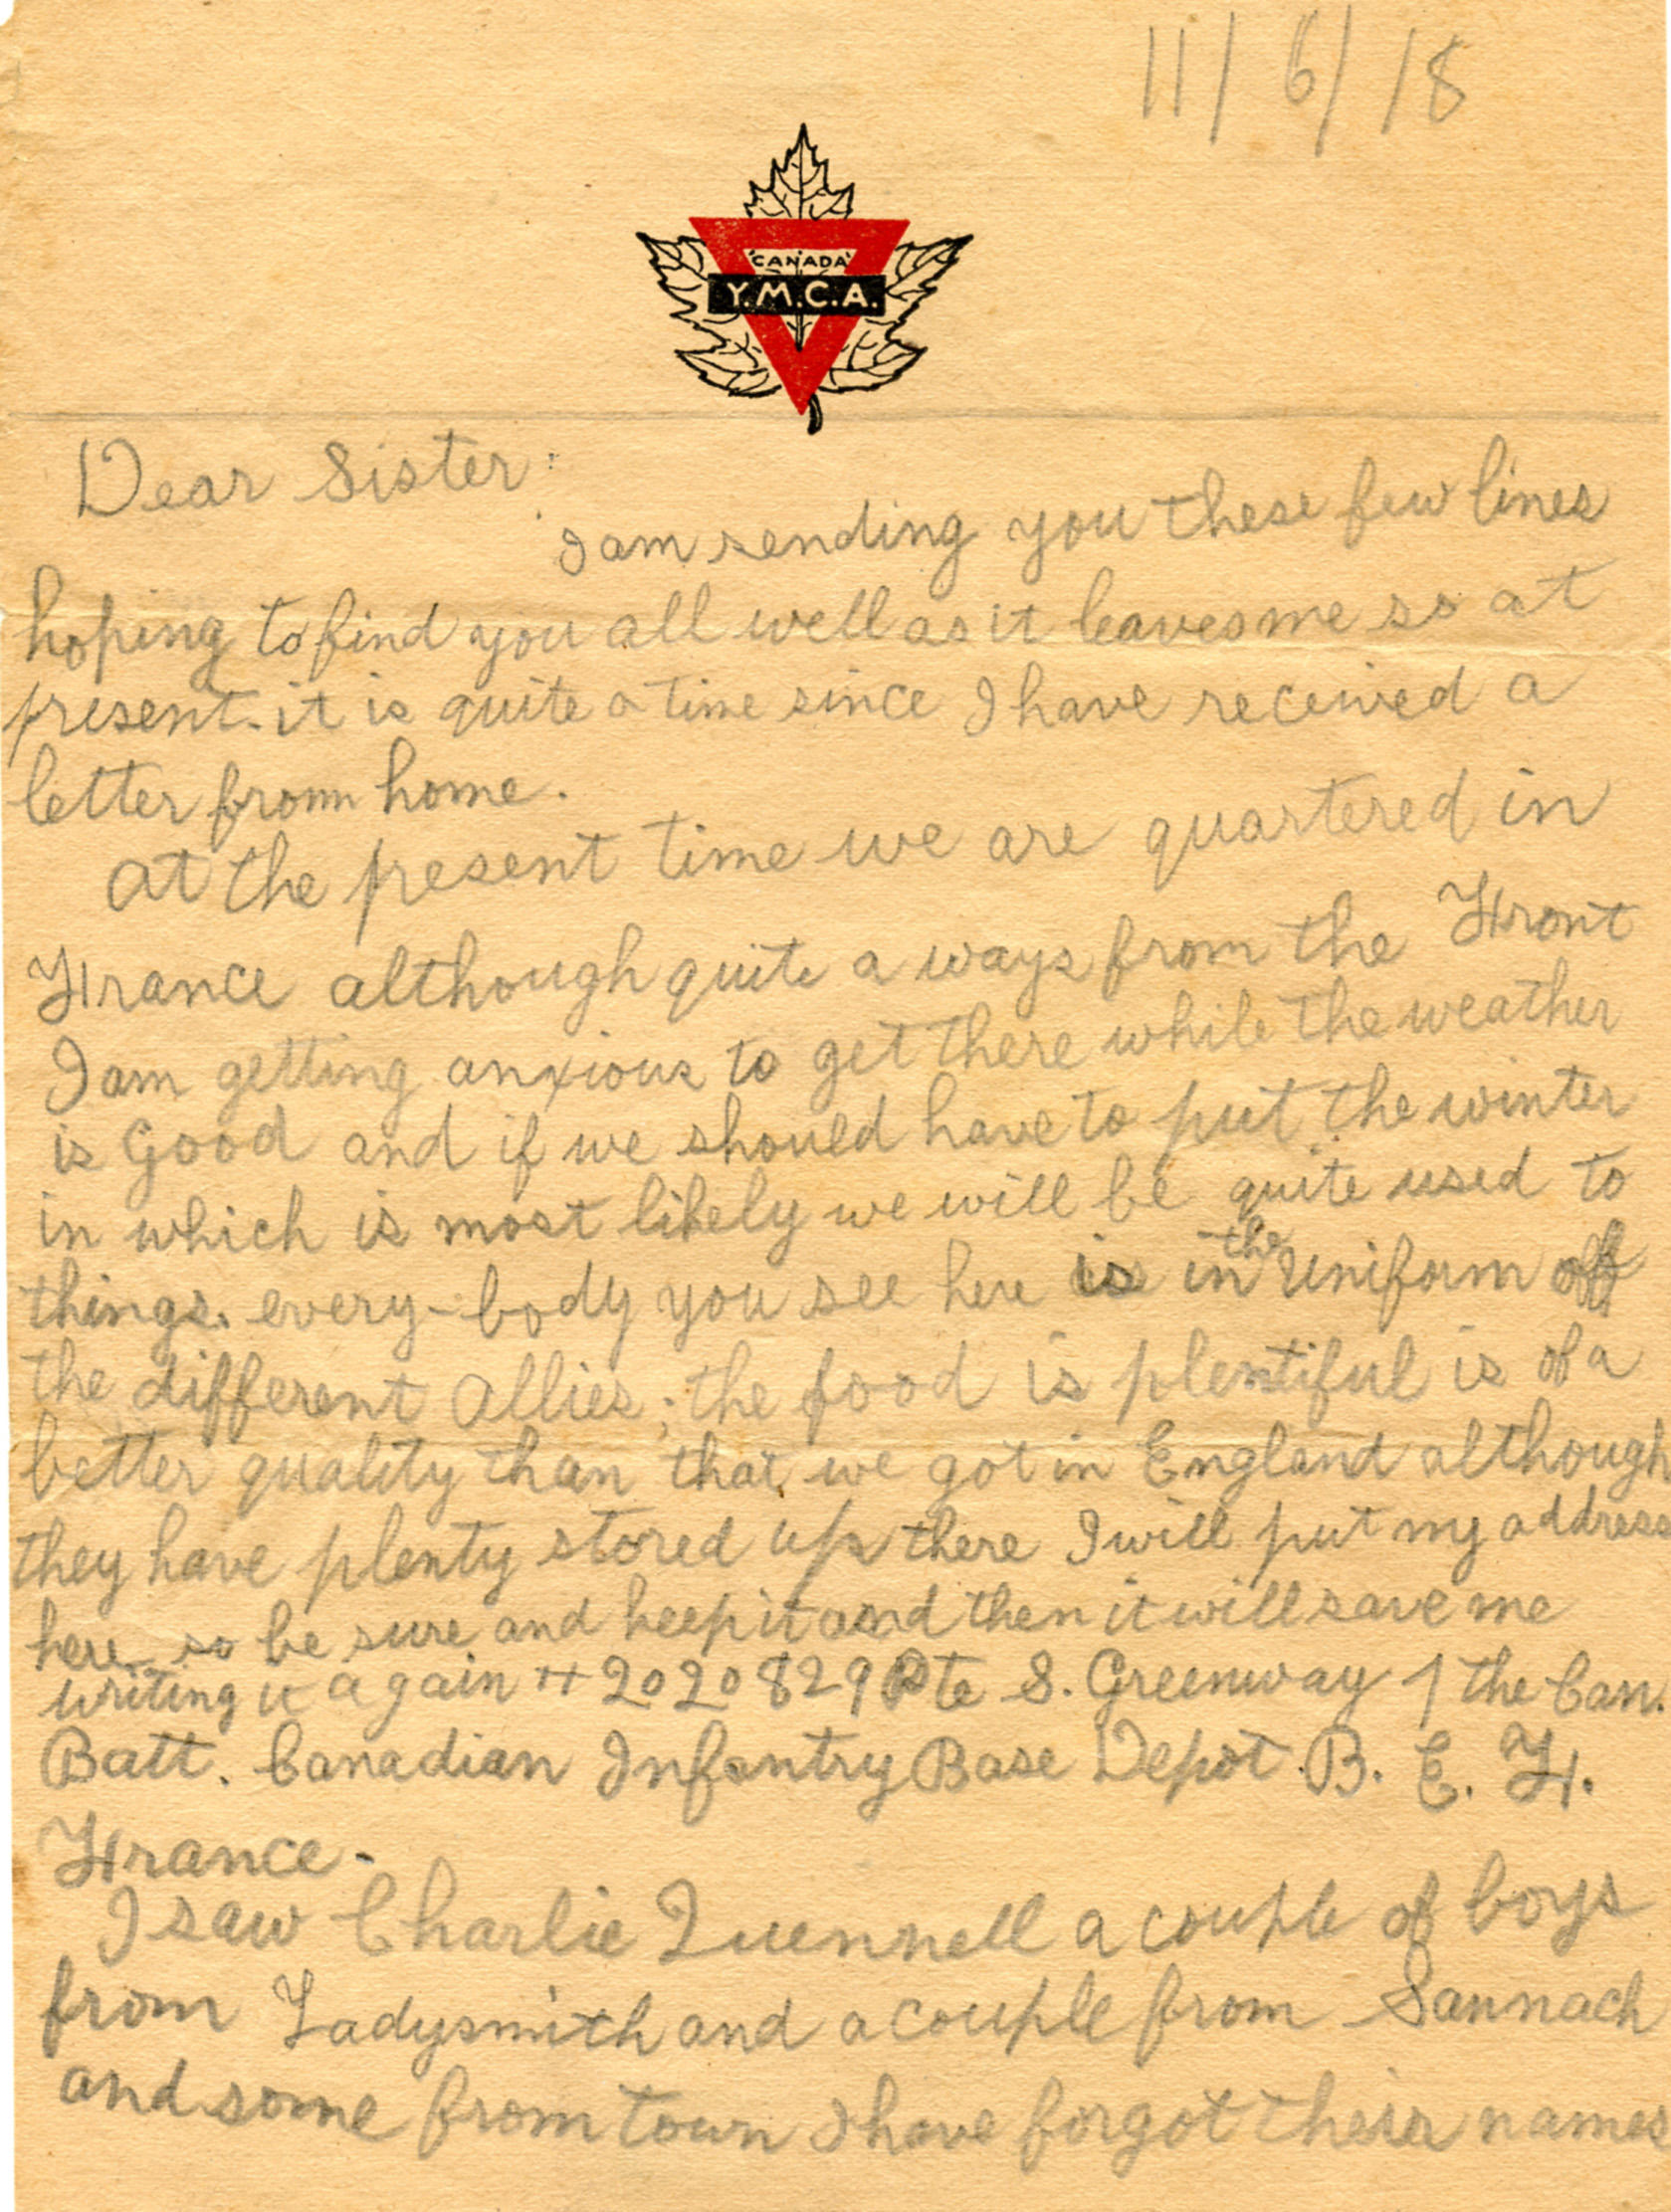 11/6/18
CANADA
Y.M.C.A.
Dear Sister:
I am sending you these few lines
hoping to find you all well as it leaves me so at
present. it is quite a time since I have received a
letter from home.
at the present time we are quartered in
France although quite a ways from the Front
I am getting anxious to get there while the weather
is Good and if we should have to put the winter
in which is most likely we will be quite used to
things. every-body you see here is in the Uniform off
the different Allies; the food is plentiful is of a
better quality than that we got in England although
they have plenty stored up there I will put my address
here so be sure and keep it and then it will save me
writing it again # 2020829 Pte S. Greenway 1 the Can.
Batt. Canadian Infantry Base Depot B. E. F.
France-
I saw Charlie Quennell a couple of boys
from Ladysmith and a couple from Sannach
and some from town I have forgot their names